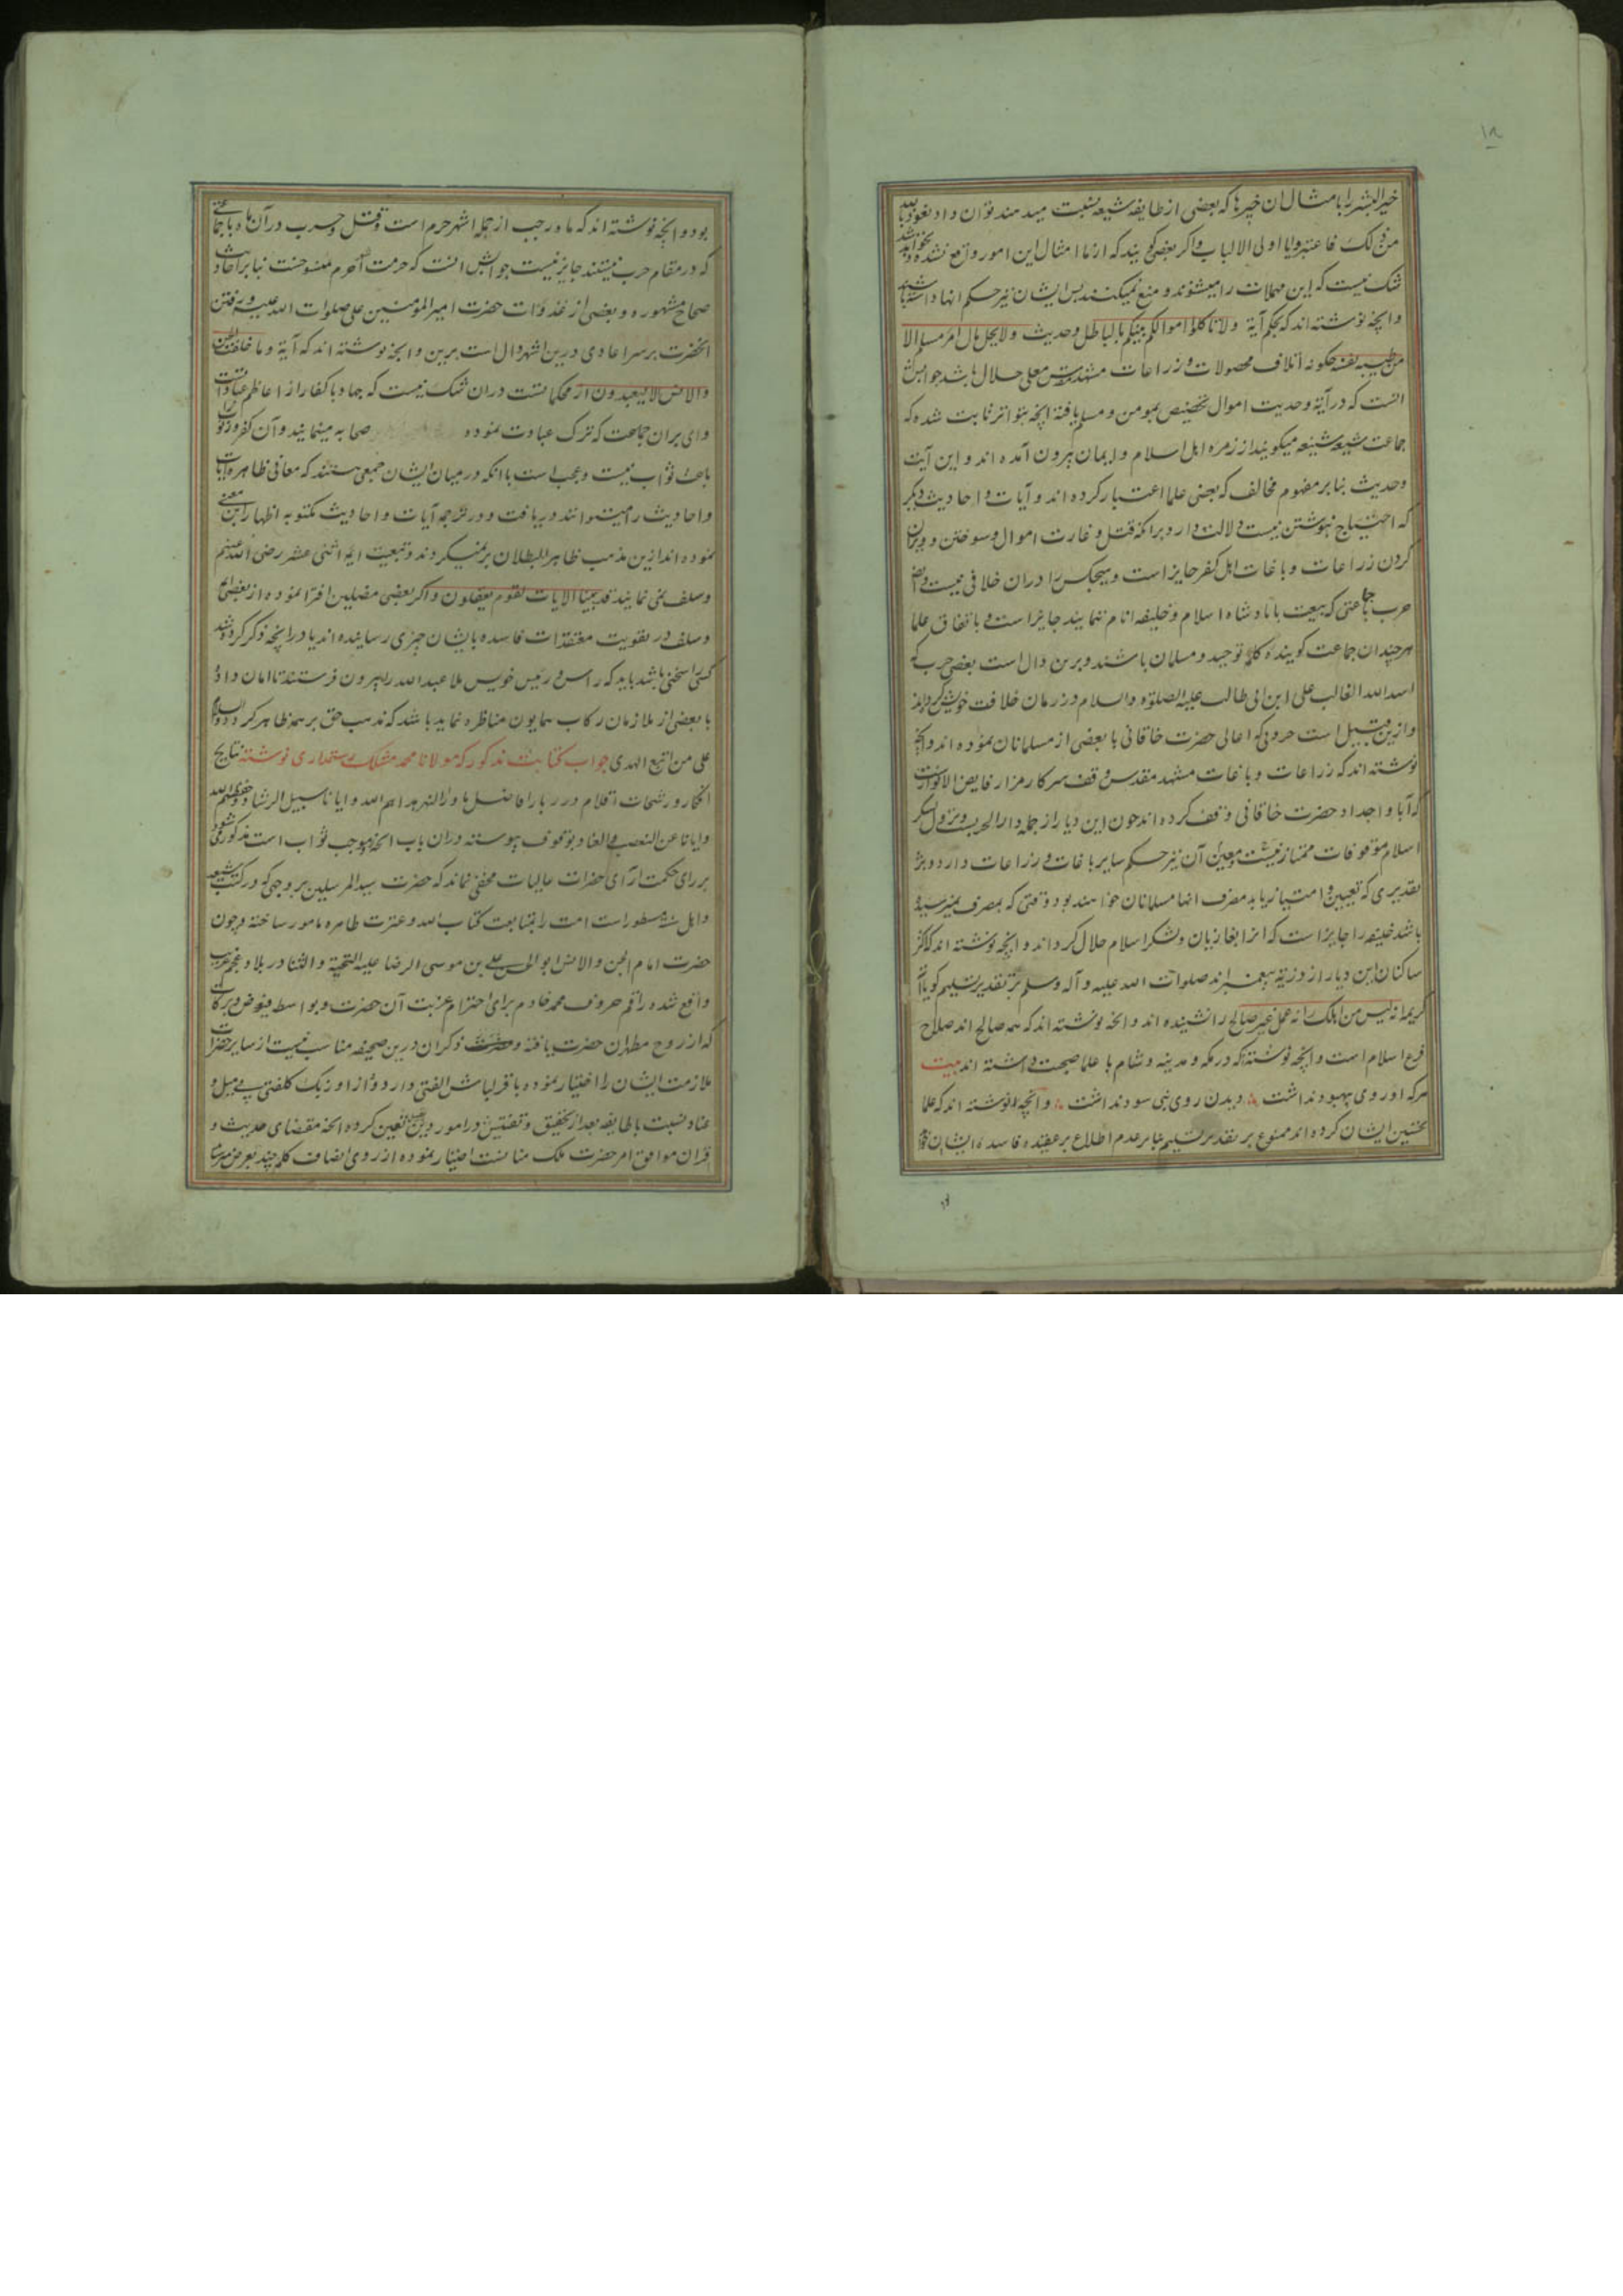 ۱۸
خیر البشر را بامثال ان خیرها که بعضی از طایفه شیعه نسبت میدهند توان داد نعوذ بالله
من ذلک فاعتبروا یا اولی الالباب و اکر بعضی کویند که از ما امثال این امور واقع نشده
شک نیست که این مهملات را میشنوند و منع نمیکنند پس ایشان نیز حکم انها داشته باشند
و انچه نوشته اند که بحکم آیة ولا تاکلوا اموالکم بینکم بالباطل وحدیث ولا یحل مال امرء مسلم الا
من طیبة نفسه چکونه اتلاف محصولات و زراعات مشهد مقدس معلی حلال باشد جوابش
انست که در آیة وحدیث اموال تخصیص بمومن و مسلم یافته انچه بتواتر ثابت شده که
جماعت شیعه شنیعه میکویند از زمره اهل اسلام و ایمان بیرون آمده اند و این آیت
وحدیث بنا بر مفهوم مخالف که بعضی علما اعتبار کرده اند و آیات و احادیث دیکر
که احتیاج بنوشتن نیست دلالت دارد برانکه قتل و غارت اموال و سوختن و ویران
کردن زراعات و باغات اهل کفر جایز است و هیچکس را دران خلافی نیست و ایضا
حرب با جماعتی که بیعت با پادشاه اسلام و خلیفه انام ننمایند جایز است و باتفاق علما
هرچندان جماعت کوینده کلمه توحید و مسلمان باشند و برین دال است بعضی حرب که
اسد الله الغالب علی ابن ابی طالب علیه الصلوة والسلام در زمان خلافت خویش کرده اند
و ازین قبیل است حروبی که اعالی حضرت خاقانی با بعضی از مسلمانان نموده اند و انچه
نوشته اند که زراعات و باغات مشهد مقدس وقف سرکار مزار فایض الانوار است
که آبا و اجداد حضرت خاقانی وقف کرده اند چون این دیار از جمله دار الحرب است و نزول لشکر
اسلام موقوفات ممتاز نیست و معین آن نیز حکم سایر باغات و زراعات دارد و بر
تقدیری که تعیین و امتیاز یابد مصرف انها مسلمانان خواهند بود وقتی که بمصرف نمیرسیده
باشد خلیفه را جایز است که انرا بغازیان ولشکر اسلام حلال کرداند و انچه نوشته اند که اکثر
ساکنان این دیار از ذریه پیغمبراند صلوات الله علیه و آله وسلم بر تقدیر تسلیم کویا آیة
کریمه انه لیس من اهلک انه عمل غیر صالح را نشنیده اند و انچه نوشته اند که همه صالح اند صلاح
فرع اسلام است و انچه نوشته که در مکه و مدینه و شام با علما صحبت داشته اند بیت
هرکه او روی بهبود نداشت دیدن روی نبی سود نداشت و انچه نوشته اند که علما
تحسین ایشان کرده اند ممنوع بر تقدیر تسلیم بنا بر عدم اطلاع بر عقیده فاسده ایشان
بود و انچه نوشته اند که ماه رجب از جمله اشهر حرم است و قتل و حرب در آن ماه با جماعتی
که در مقام حرب نیستند جایز نیست جوابش انست که حرمت اشهر حرم منسوخست بنا بر احادیث
صحاح مشهوره و بعضی از غذوات حضرت امیر المومنین علی صلوات الله علیه و رفتن
انحضرت بر سر اعادی درین اشهر دال است برین و انچه نوشته اند که آیة وما خلقت الجن
والانس الا لیعبدون از محکماتست دران شک نیست که جهاد با کفار از اعاظم عبادات است
وای بران جماعت که ترک عبادت نموده صحابه مینمایند و آن کفر و
باعث ثواب نیست و عجب است با انکه در میان ایشان جمعی هستند که معانی ظاهره آیات
و احادیث را میتوانند دریافت و در ترجمه آیات و احادیث مکتوبه اظهار این معنی
نموده اند ازین مذهب ظاهر البطلان برنمیکردند و تبعیت ایمه اثنی عشر رضی الله عنهم
وسلف نمی نمایند قد بینا الایات لقوم یعقلون و اکر بعضی مضلین افترا نموده از بعضی ائمه
وسلف در تقویت معتقدات فاسده بایشان چیزی رسانیده اند یا در انچه ذکر کرده شد
کسی را سخنی باشد باید که راس و رئیس خویش ملا عبد الله را بیرون فرستند تا امان داده
با بعضی از ملازمان رکاب همایون مناظره نماید باشد که مذهب حق بر همه ظاهر کردد والسلام
علی من اتبع الهدی جواب کتابت مذکور که مولانا محمد مشکک رستمداری نوشته نتایج
افکار و رشحات اقلام درر بار افاضل ماوراءالنهر هداهم الله وایانا سبیل الرشاد وحفظهم الله
وایانا عن التعصب والعناد بوقوف پیوسته دران باب انچه موجب ثواب است مذکور میشود
بر رای حکمت آرای حضرات عالیات مخفی نماند که حضرت سید المرسلین بروجهی که در کتب شیعه
واهل سنه مسطور است امت را بمتابعت کتاب الله و عترت طاهره مامور ساخته و چون
حضرت امام الجن والانس ابو الحسن علی بن موسی الرضا علیه التحیة والثنا در بلاد عجم غریب
واقع شده راقم حروف محمد خادم برای احترام غربت آن حضرت و بواسطه فیوض و برکاتی
که از روح مطهر ان حضرت یافته و ذکر ان درین صحیفه مناسب نیست از سایر حضرات
ملازمت ایشان را اختیار نموده با قزلباش الفتی دارد و از اوزبک کلفتی بی میل و
عناد نسبت بالطایفه بعد از تحقیق و تفتیش در امور دین تعین کرده انچه مقتضای حدیث و
قران موافق امر حضرت ملک منانست اختیار نموده از روی انصاف کلمه چند بعرض میرساند